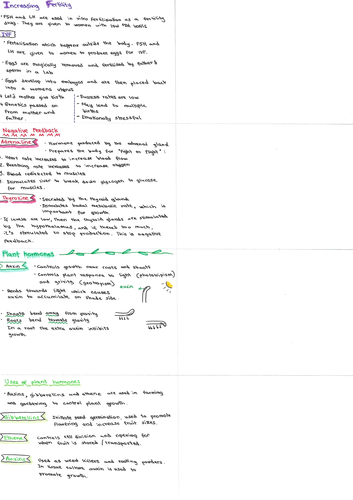 Increasing Fertility
• FSH and LH are used in vitro fertilisation as a fertility
drug. They are given to women with low FSH levels
IVF
• Fertilisation which happens outside the body. FSH and
LH are given to women to produce eggs for IVF.
• Eggs are surgically removed and fertilised by father's
sperm in a lab
• Eggs develop into embryos and are then placed back
into a womens uterus
Let's mother give birth
• Success rates are low
Genetics passed on
• May lead to multiple
from mother and
births
father.
• Emotionally stressful
Negative Feedback
Adrenaline
• Hormone produced by the adrenal gland
• Prepares the body for "fight or flight":
1. Heart rate increases to increase blood flow
2. Breathing rate increases to increase oxygen
3. Blood redirected to muscles
Stimulates liver to break down glycogen to glucose
for muscles.
Thyroxine
• Secreted by the thyroid gland
• Stimulates basal metabolic rate, which is
important for growth.
• If levels are low, then the thyroid glands are stimulated
by the hypothalamus, and if theres too much,
it's stimulated to stop production. This is negative
feedback.
Plant hormones
Auxin
• Controls growth near roots and shoots
• Controls plant response to light (phototropism)
and gravity (geotropism)
• Bends towards light which causes
auxin
auxin to accumulate on shade side.
• Shoots bend away from gravity
• Roots bend towards gravity
In a root the extra auxin inhibits
growth.
Uses of plant hormones
• Auxins, gibberellins and ethene are used in farming
and gardening to control plant growth.
Gibberellins
Initiate seed germination, used to promote
flowering and increase fruit sizes.
Ethene
Controls cell division and ripening for
when fruit is stored / transported.
Auxins
Used as weed killers and rooting powders.
In tissue culture auxin is used to
promote growth.